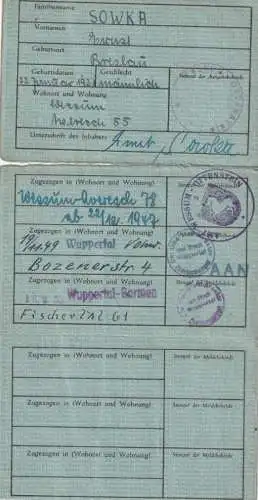 Familienname
SOWKA
Vornamen
Ernst
Geburtsort
Breslau
Geburtsdatum Geschlecht
22. Januar 1921 männlich
Stempel der Ausgabebehörde
Wohnort und Wohnung
Wessum
Averesch 55
Unterschrift des Inhabers
Ernst Sowka
Zugezogen in (Wohnort und Wohnung)
Stempel der Meldebehörde
Wessum-Averesch 78
ab 22/12. 1947
WESSUM-OTTENSTEIN
AMT
Zugezogen in (Wohnort und Wohnung)
19/11.49 Wuppertal
Bozenerstr. 4
AAN
Zugezogen in (Wohnort und Wohnung)
Wuppertal-Barmen
Fischertal 61
Zugezogen in (Wohnort und Wohnung)
Stempel der Meldebehörde
Zugezogen in (Wohnort und Wohnung)
Stempel der Meldebehörde
Zugezogen in (Wohnort und Wohnung)
Stempel der Meldebehörde